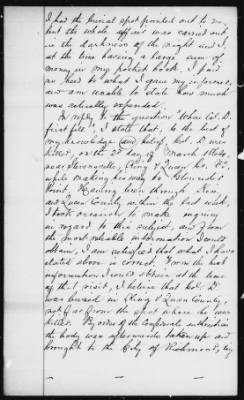 I had the burial spot pointed out to me,
but the whole affair was carried out
in the darkness of the night and I,
at the time having a large sum of
money in my pocket book, I paid
no heed to what I gave my informer,
and am unable to state how much
was actually expended.
In reply to the question "When Col. D.
first fell", I state that, to the best of
my knowledge and belief, Col. D. was
killed, on the 2d day of March 1864,
near Stevensville, King & Queen Co. Va.,
while making his way to Gloucester
Point. Having been through King
and Queen County within the last week,
I took occasion to make inquiry
in regard to this subject, and from
the most reliable information I could
obtain, I am satisfied that what I have
stated above is correct. From the best
information I could obtain at the time
of that visit, I believe that Col. D.
was buried in King & Queen County,
not far from the spot where he was
killed. By order of the Confederate authorities
the body was afterwards taken up and
brought to the City of Richmond, by